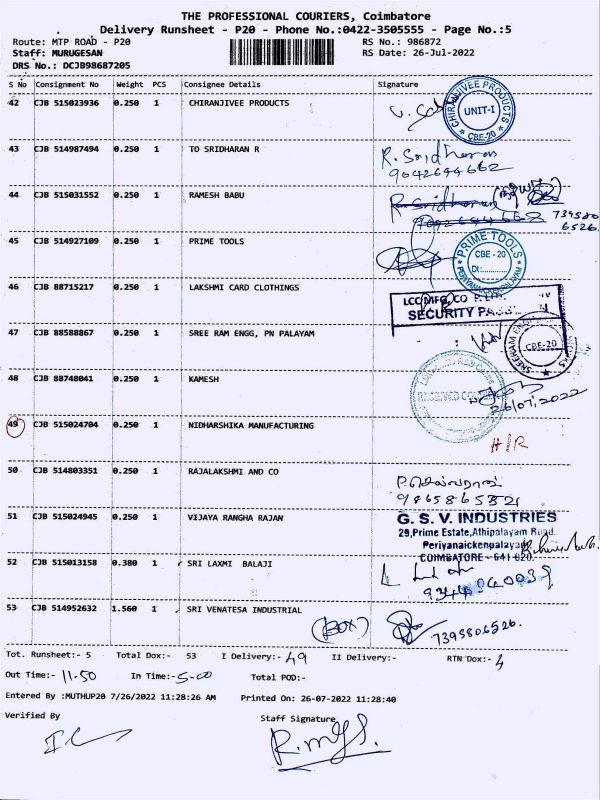 THE PROFESSIONAL COURIERS, Coimbatore
Delivery Runsheet - P20 - Phone No.:0422-3505555 - Page No.:5
Route: MTP ROAD - P20 RS No.: 986872
Staff: MURUGESAN RS Date: 26-Jul-2022
DRS No.: DCJB98687205
S No Consignment No Weight PCS Consignee Details Signature
42 CJB 515023936 0.250 1 CHIRANJIVEE PRODUCTS
CHIRANJIVEE PRODUCTS UNIT-I CBE-20
43 CJB 514987494 0.250 1 TO SRIDHARAN R R. Sridharan
9042644662
44 CJB 515031552 0.250 1 RAMESH BABU R. Sridharan
9092644662 739580
6526.
45 CJB 514927109 0.250 1 PRIME TOOLS
PRIME TOOLS CBE - 20 Dt:
46 CJB 88715217 0.250 1 LAKSHMI CARD CLOTHINGS
LCC MFG. CO
SECURITY
47 CJB 88588867 0.250 1 SREE RAM ENGG, PN PALAYAM
CBE-20
48 CJB 88748041 0.250 1 KAMESH
RECEIVED
26/07/2022
49 CJB 515024704 0.250 1 NIDHARSHIKA MANUFACTURING
H/R
50 CJB 514803351 0.250 1 RAJALAKSHMI AND CO
9865865821
51 CJB 515024945 0.250 1 VIJAYA RANGHA RAJAN G. S. V. INDUSTRIES
29,Prime Estate,Athipalayam Road.
Periyanaickenpalayam
COIMBATORE - 641 020.
52 CJB 515013158 0.380 1 SRI LAXMI BALAJI
53 CJB 514952632 1.560 1 SRI VENATESA INDUSTRIAL
(BOX) 7395806526.
Tot. Runsheet:- 5 Total Dox:- 53 I Delivery:- 49 II Delivery:- RTN Dox:- 4
Out Time:- 11-50 In Time:- 5-00 Total POD:-
Entered By :MUTHUP20 7/26/2022 11:28:26 AM Printed On: 26-07-2022 11:28:40
Verified By Staff Signature